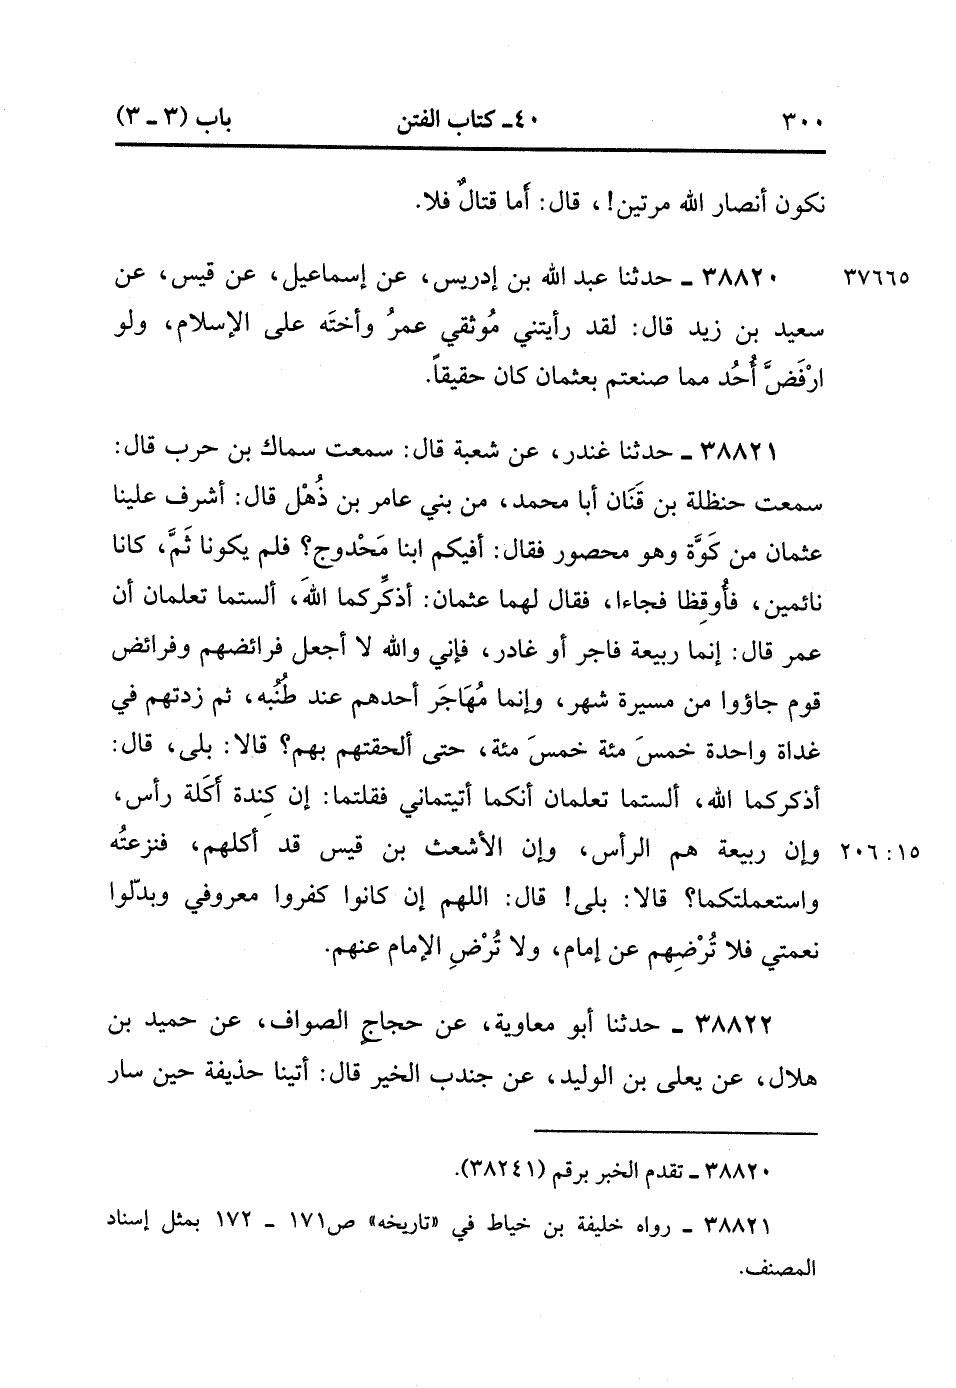 ٣٠٠ ٤٠ـ كتاب الفتن باب (٣ ـ ٣)
نكون أنصار الله مرتين!، قال: أما قتالٌ فلا.
٣٧٦٦٥ ٣٨٨٢٠ ـ حدثنا عبد الله بن إدريس، عن إسماعيل، عن قيس، عن
سعيد بن زيد قال: لقد رأيتني مُوثقي عمرُ وأختَه على الإسلام، ولو
ارْفَضَّ أُحُد مما صنعتم بعثمان كان حقيقاً.
٣٨٨٢١ ـ حدثنا غندر، عن شعبة قال: سمعت سماك بن حرب قال:
سمعت حنظلة بن قَنَان أبا محمد، من بني عامر بن ذُهْل قال: أشرف علينا
عثمان من كَوَّة وهو محصور فقال: أفيكم ابنا مَحْدوج؟ فلم يكونا ثَمَّ، كانا
نائمين، فأُوقِظا فجاءا، فقال لهما عثمان: أذكِّركما اللهَ، ألستما تعلمان أن
عمر قال: إنما ربيعة فاجر أو غادر، فإني والله لا أجعل فرائضهم وفرائض
قوم جاؤوا من مسيرة شهر، وإنما مُهَاجَر أحدهم عند طُنُبه، ثم زدتهم في
غداة واحدة خمسَ مئة خمسَ مئة، حتى ألحقتهم بهم؟ قالا: بلى، قال:
أذكركما الله، ألستما تعلمان أنكما أتيتماني فقلتما: إن كِندة أَكَلة رأس،
١٥: ٢٠٦ وإن ربيعة هم الرأس، وإن الأشعث بن قيس قد أكلهم، فنزعتُه
واستعملتكما؟ قالا: بلى! قال: اللهم إن كانوا كفروا معروفي وبدّلوا
نعمتي فلا تُرْضِهم عن إمام، ولا تُرْضِ الإمام عنهم.
٣٨٨٢٢ ـ حدثنا أبو معاوية، عن حجاج الصواف، عن حميد بن
هلال، عن يعلى بن الوليد، عن جندب الخير قال: أتينا حذيفة حين سار
٣٨٨٢٠ ـ تقدم الخبر برقم (٣٨٢٤١).
٣٨٨٢١ ـ رواه خليفة بن خياط في «تاريخه» ص١٧١ ـ ١٧٢ بمثل إسناد
المصنف.